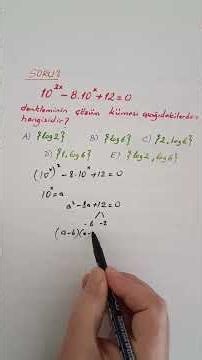 SORU:
10²ˣ - 8.10ˣ + 12 = 0
denkleminin çözüm kümesi aşağıdakilerden
hangisidir?
A) {log2} B) {log6} C) {2, log6}
D) {1, log6} E) {log2, log6}
(10ˣ)² - 8.10ˣ + 12 = 0
10ˣ = a
a² - 8a + 12 = 0
-6 -2
(a-6)(a-